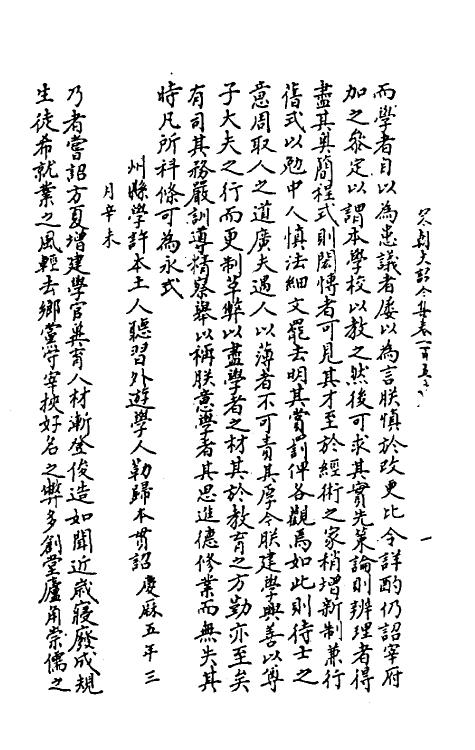 宋大詔令集卷一百五十七
而學者自以為患議者屢以為言朕慎於改更比令詳酌仍詔宰府
加之參定以謂本學校以教之然後可求其實先策論則辨理者得
盡其奧簡程式則閎博者可見其才至於經術之家稍增新制兼行
舊式以勉中人慎法細文罷去明其賞罰俾各觀焉如此則待士之
意周取人之道廣夫遇人以薄者不可責其厚今朕建學興善以尊
子大夫之行而更制革弊以盡學者之材其於教育之方勤亦至矣
有司其務嚴訓導精察舉以稱朕意學者其思進德修業而無失其
時凡所科條可為永式
州縣學許本土人聽習外遊學人勒歸本貫詔慶厤五年三
月辛未
乃者嘗詔方夏增建學官兾育人材漸登俊造如聞近歲寖廢成規
生徒希就業之風輕去鄉黨守宰挾好名之弊多創堂廬角崇儒之